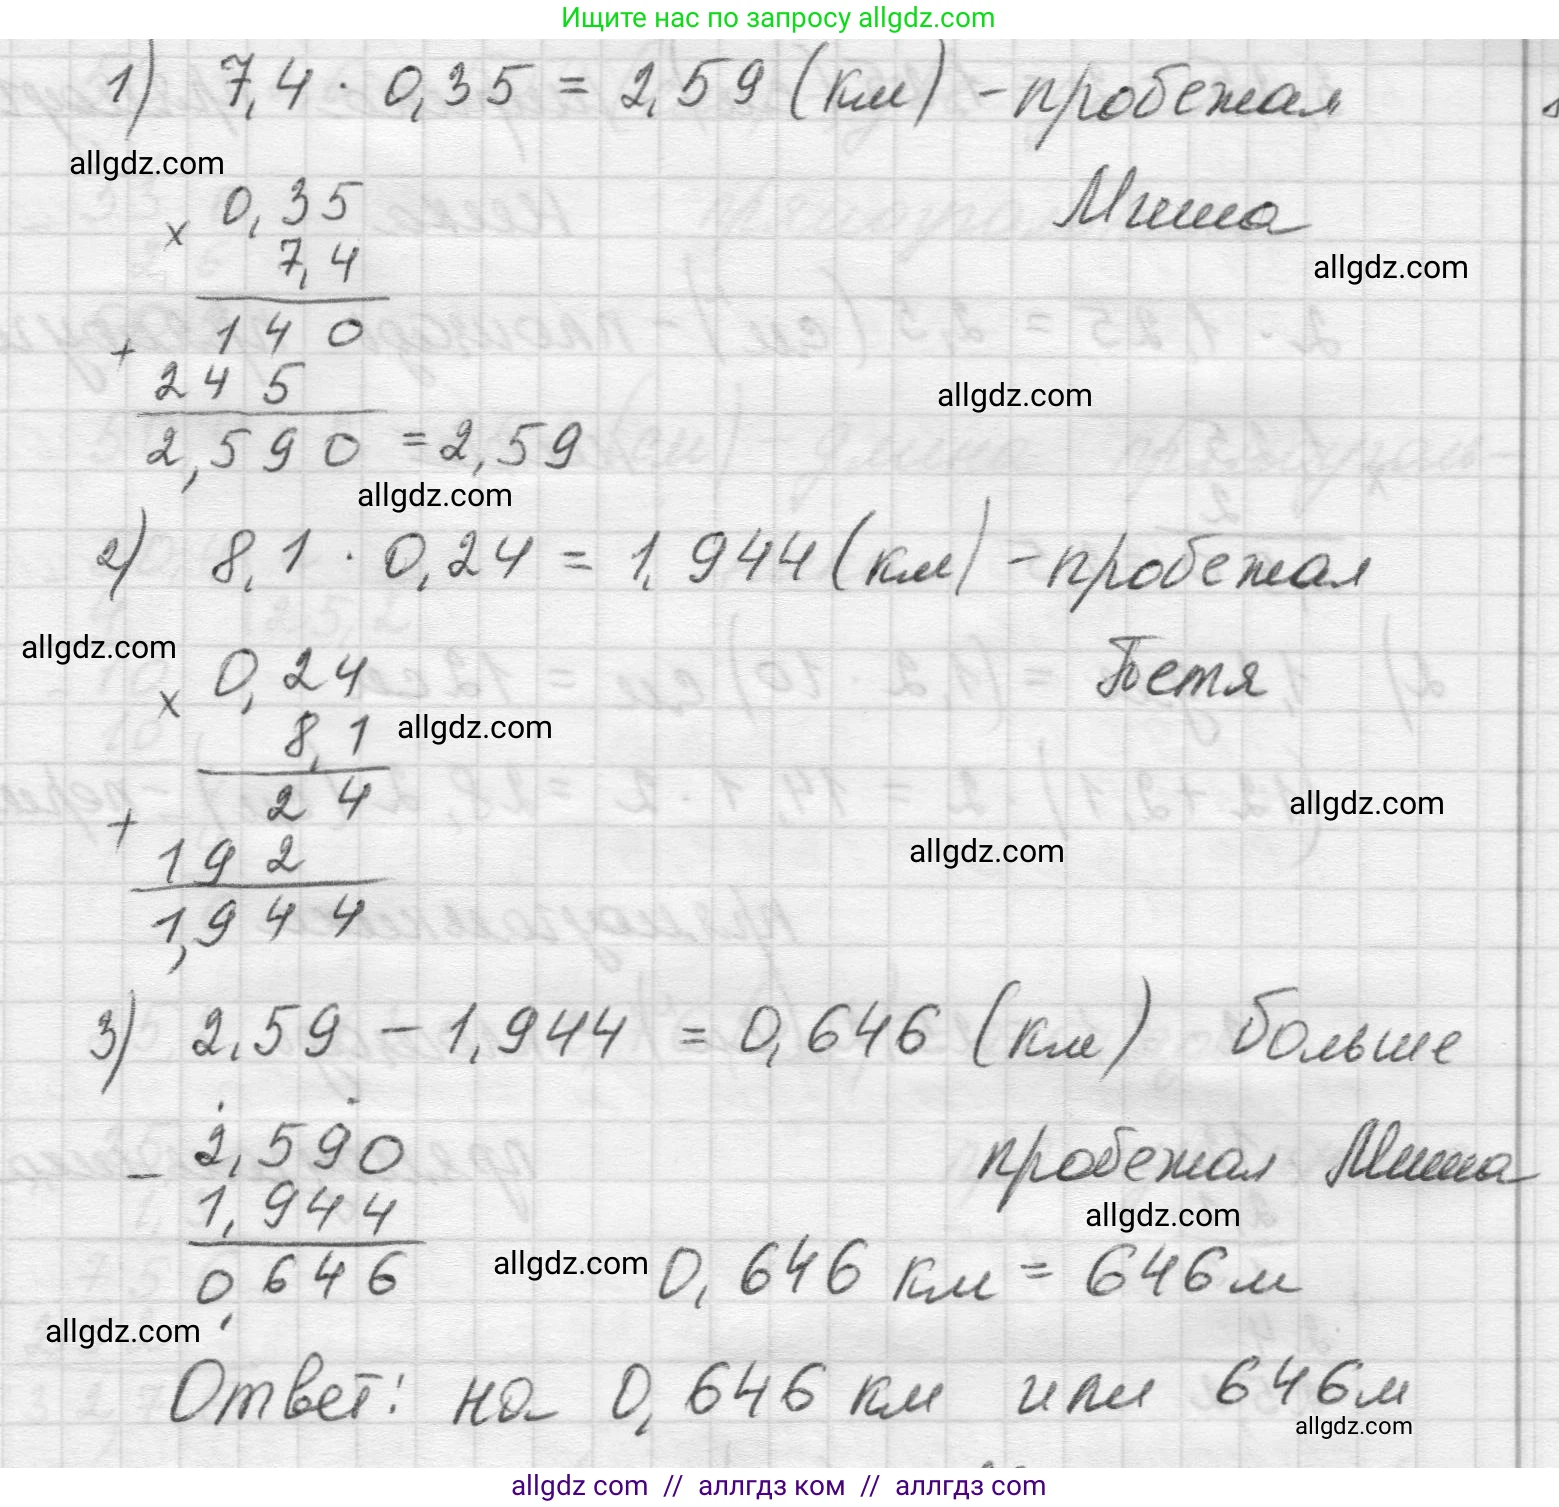 Ищите нас по запросу allgdz.com
1) 7,4 · 0,35 = 2,59 (км) - пробежал
allgdz.com
Миша
× 0,35
7,4
allgdz.com
+ 140
245
allgdz.com
2,590 = 2,59
allgdz.com
2) 8,1 · 0,24 = 1,944 (км) - пробежал
allgdz.com
Петя
× 0,24
8,1
allgdz.com
+ 24
allgdz.com
192
allgdz.com
1,944
3) 2,59 - 1,944 = 0,646 (км) больше
пробежал Миша
- 2,590
1,944
allgdz.com
0,646
allgdz.com
0,646 км = 646 м
allgdz.com
Ответ: на 0,646 км или 646 м
allgdz.com
allgdz com // аллгдз ком // аллгдз com